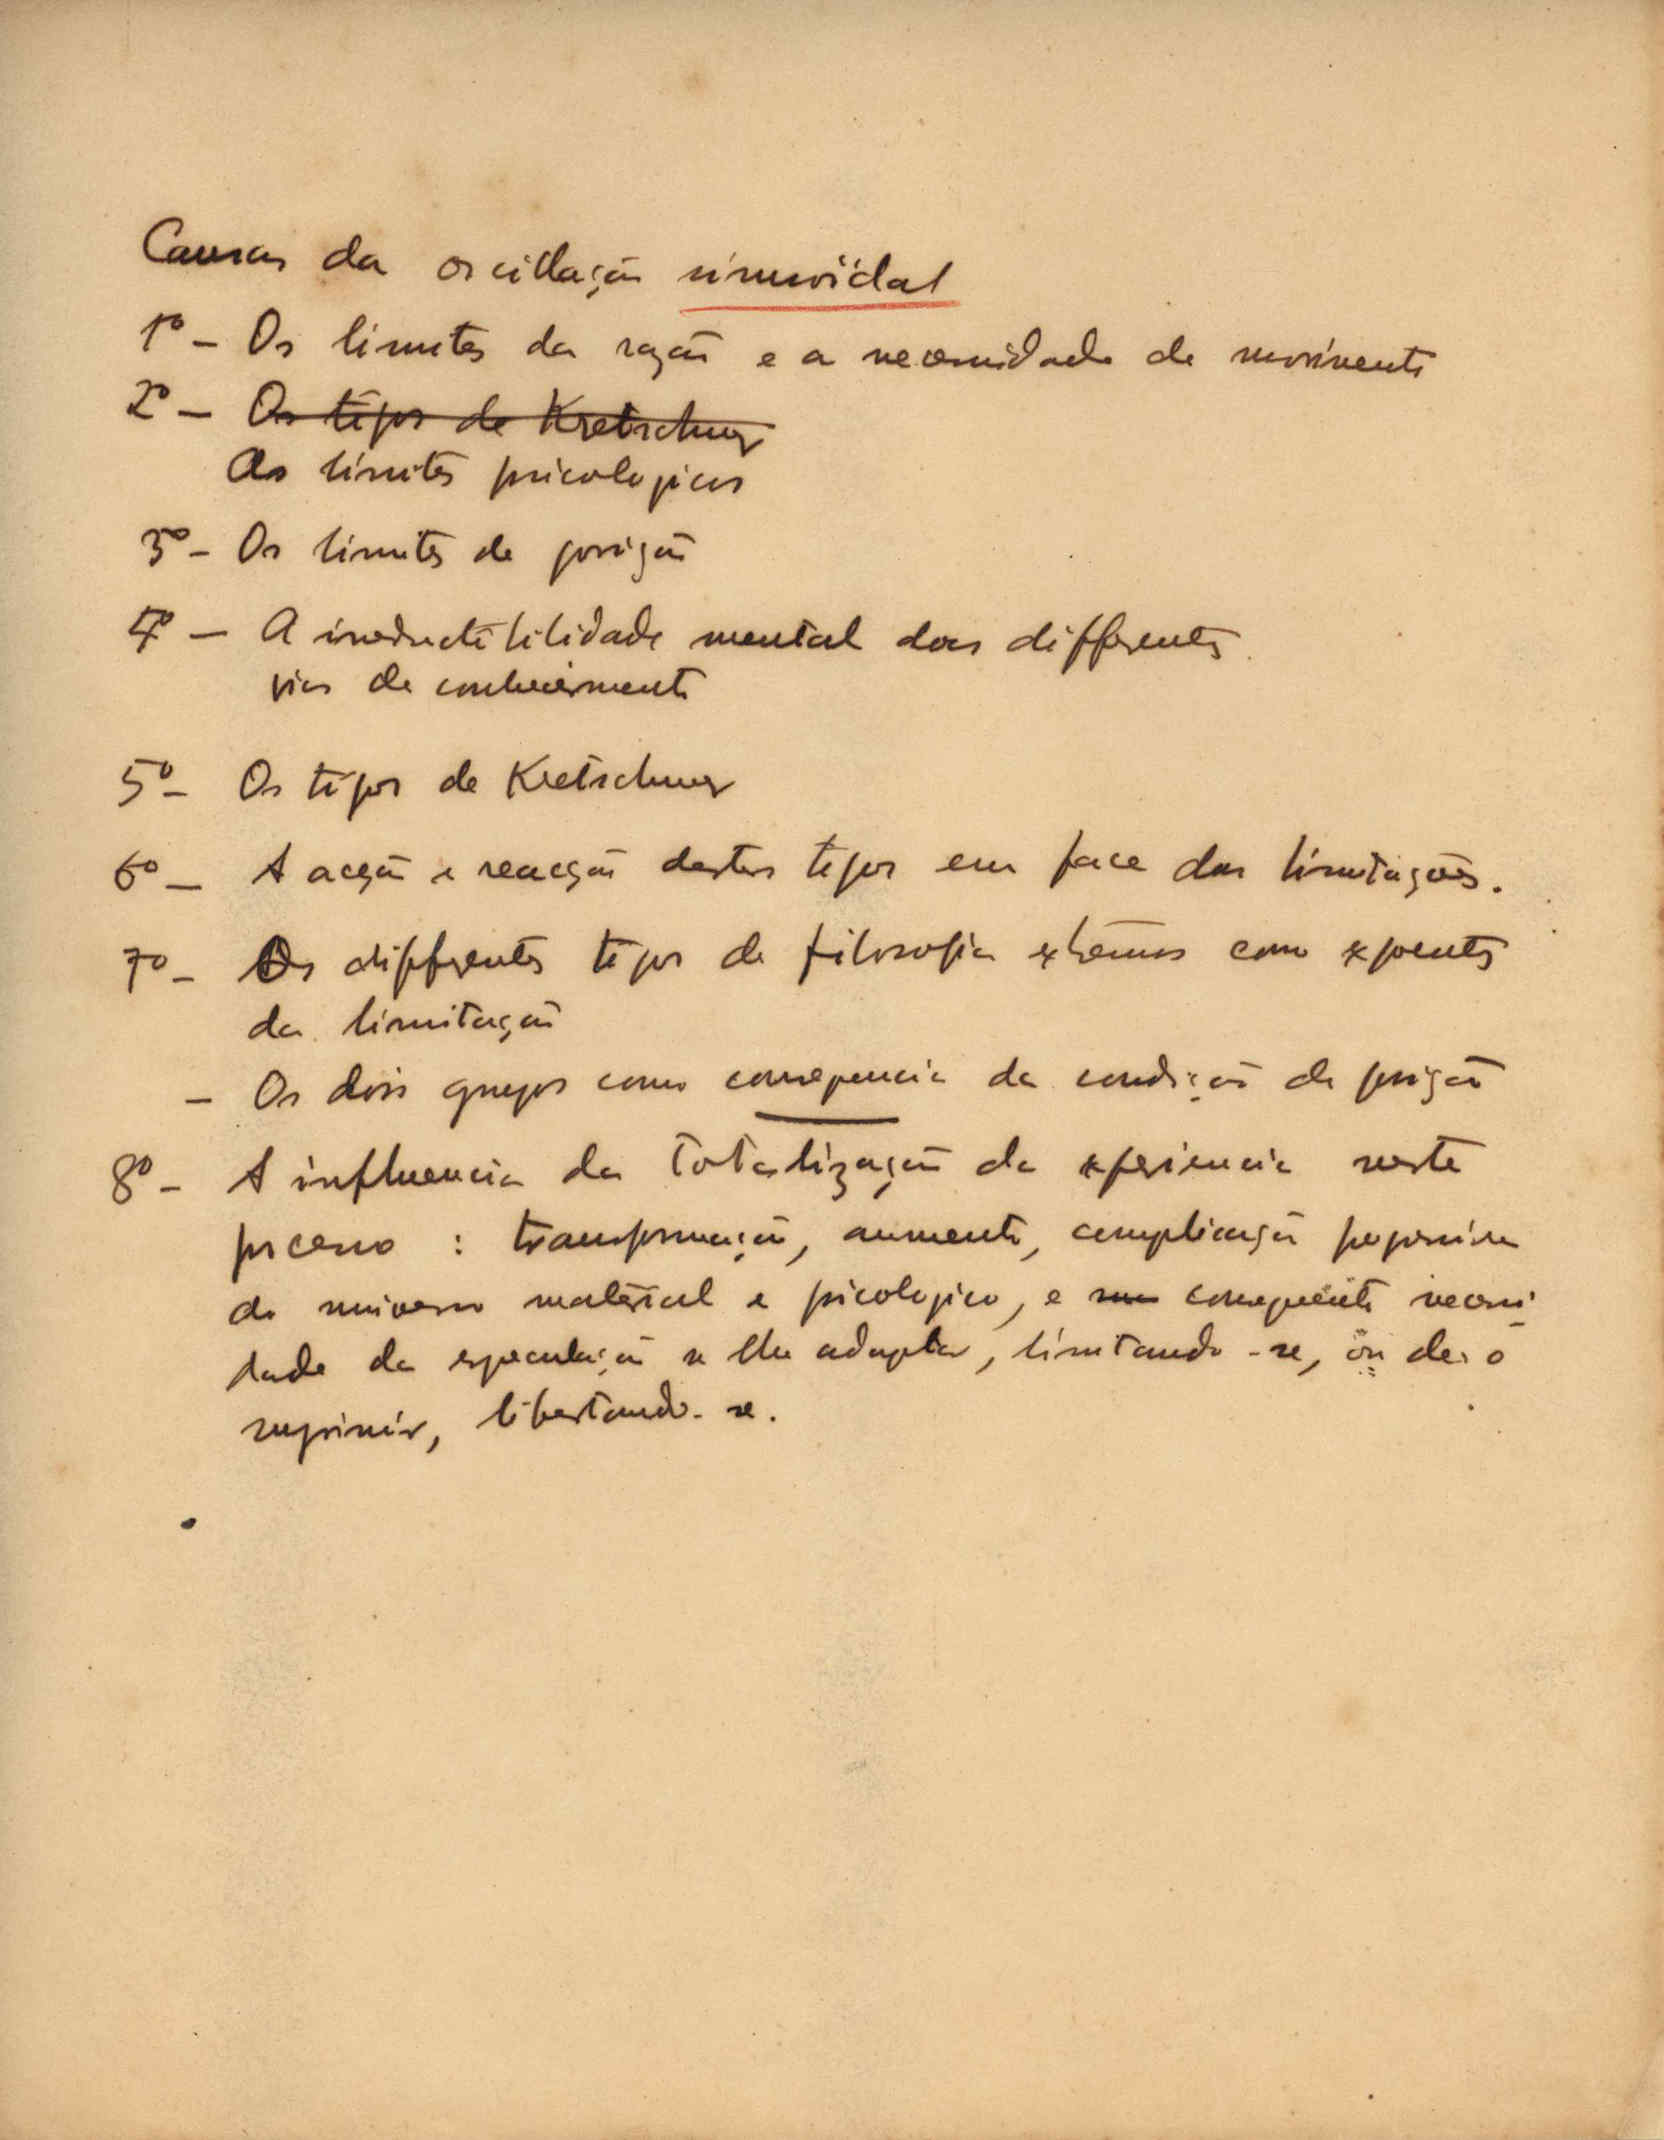 Causas da oscillação sinusoidal
1º - Os limites da razão e a necessidade de movimento
2º - Os tipos de Kretschmer
Os limites psicologicos
3º - Os limites de posição
4º - A irreductibilidade mental das differentes
vias de conhecimento
5º - Os tipos de Kretschmer
6º - A acção e reacção destes tipos em face das limitações.
7º - Os differentes tipos de filosofia extremos como expoentes
da limitação
- Os dois grupos como consequencia da condição de posição
8º - A influencia da totalização da experiencia neste
processo : transformação, aumento, complicação progressiva
do universo material e psicologico, e consequente necessi-
dade da especulação se lhe adaptar, limitando-se, ou de o
suprimir, libertando-se.